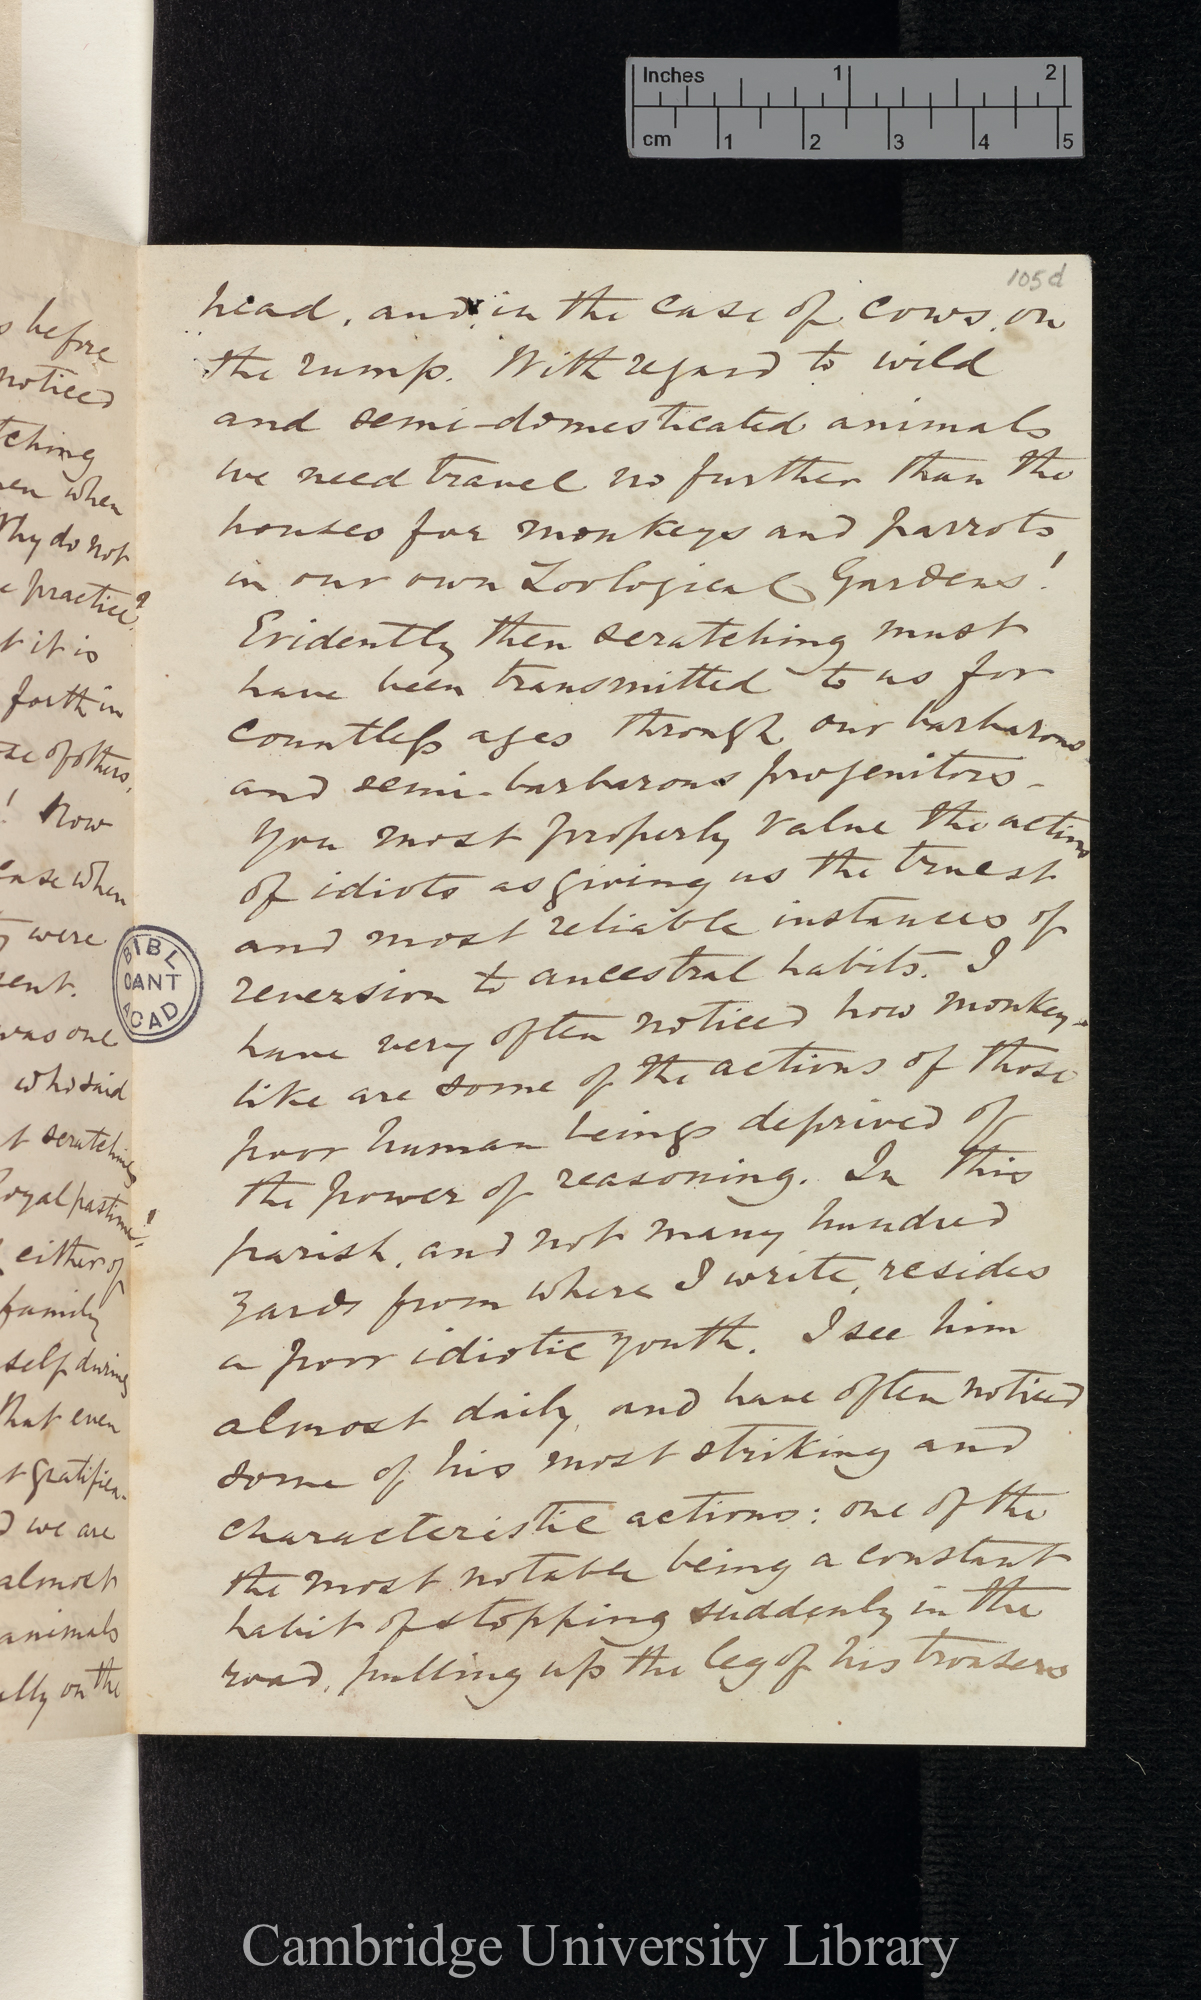 Inches 1 2
cm 1 2 3 4 5
105d
s before
noticed
tching
en when
Why do not
e practice?
t it is
forth in
se of others,
! Now
ense when
were
sent.
was one
who said
t scratching
Royal pastime!"
either of
family
self during
that even
t gratifica-
d we are
almost
animals
ally on the
BIBL
CANT
ACAD
head, and in the case of cows, on
the rump. With regard to wild
and semi-domesticated animals
we need travel no further than the
houses for monkeys and parrots
in our own Zoological Gardens!
Evidently then scratching must
have been transmitted to us for
countless ages through our barbarous
and semi-barbarous progenitors-
You most properly value the actions
of idiots as giving us the truest
and most reliable instances of
reversion to ancestral habits. I
have very often noticed how monkey-
like are some of the actions of those
poor human beings deprived of
the power of reasoning. In this
parish, and not many hundred
yards from where I write, resides
a poor idiotic youth. I see him
almost daily, and have often noticed
some of his most striking and
characteristic actions: one of the
the most notable being a constant
habit of stopping suddenly in the
road, pulling up the leg of his trousers
Cambridge University Library